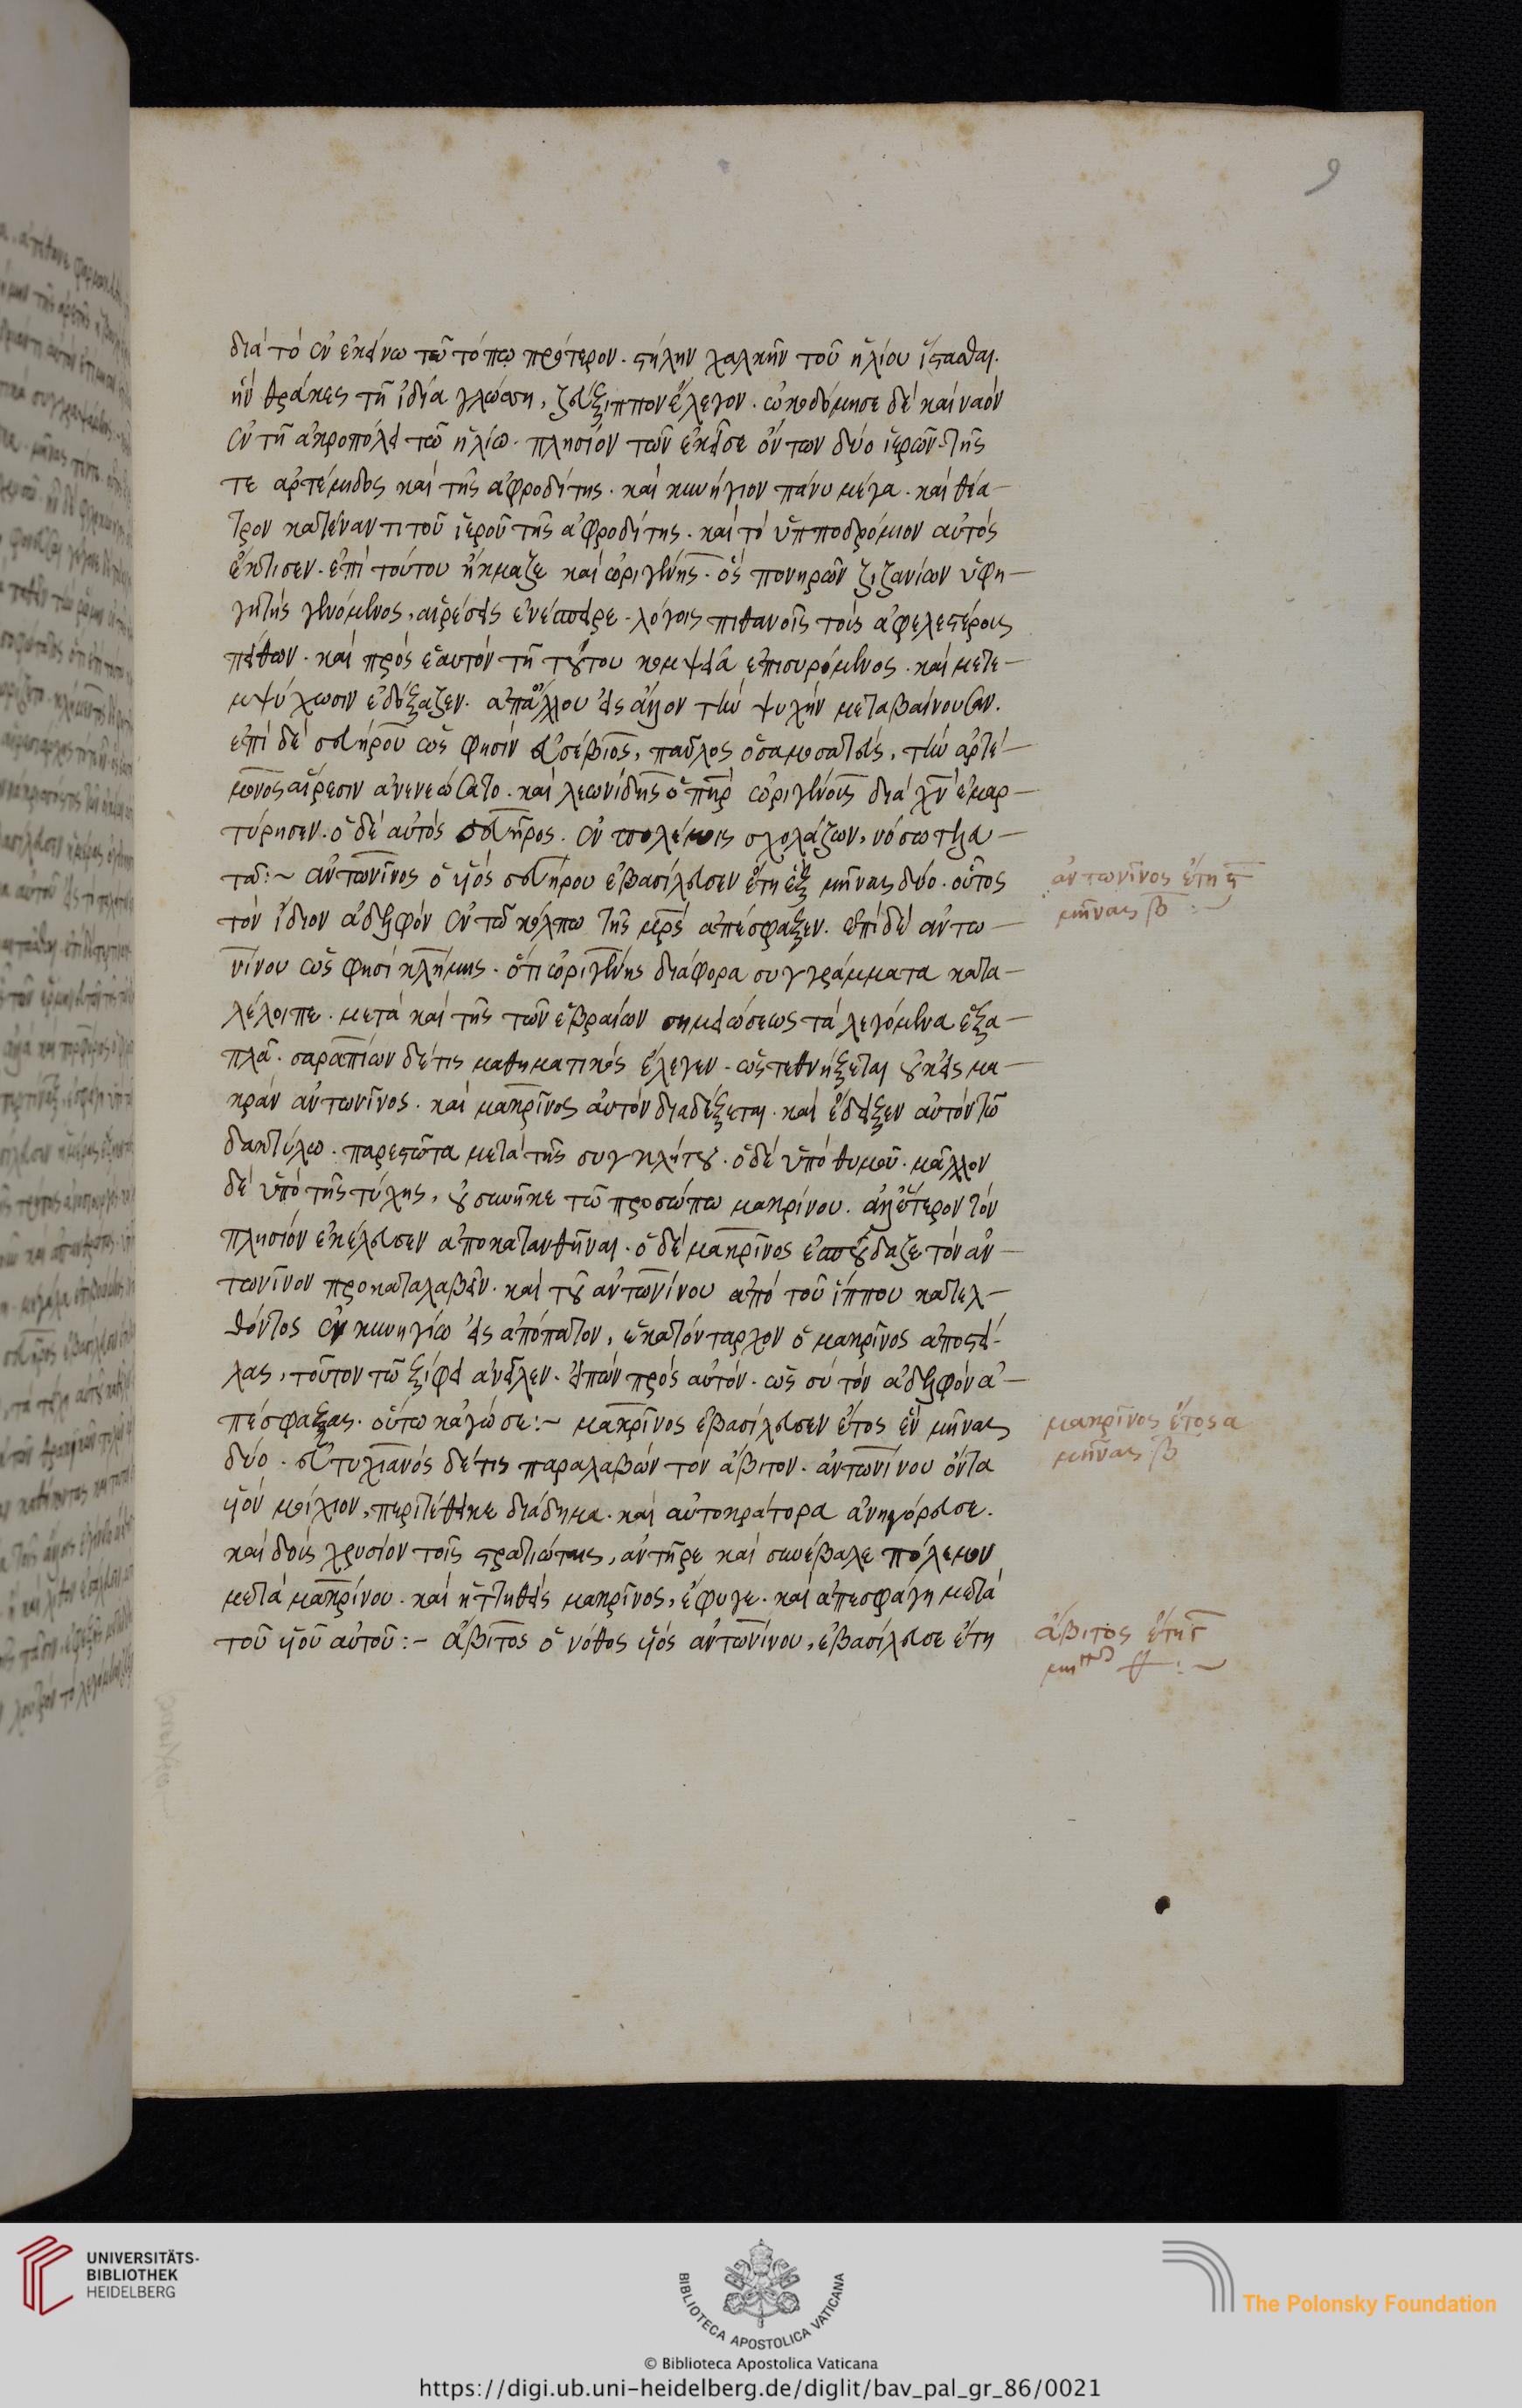 9
διὰ τὸ ἐν ἐκείνω τῶ τόπω πρότερον. στήλην χαλκῆν τοῦ ἡλίου ἵστασθαι.
ἣν θράκες τῆ ἰδία γλώσση, ζεύξιππον ἔλεγον. ὠκοδόμησε δὲ καὶ ναὸν
ἐν τῆ ἀκροπόλει τῶ ἡλίω. πλησίον τῶν ἐκεῖσε ὄντων δύο ἱερῶν. τῆς
τε ἀρτέμιδος καὶ τῆς ἀφροδίτης. καὶ κυνήγιον πάνυ μέγα. καὶ θέα
τρον κατέναντι τοῦ ἱεροῦ τῆς ἀφροδίτης. καὶ τὸ ἱπποδρόμιον αὐτὸς
ἔκτισεν. ἐπὶ τούτου ἤκμαζε καὶ ὠριγένης. ὃς πονηρῶν ζιζανίων ὑφη
γητὴς γενόμενος, αἱρέσεις ἐνέσπειρε. λόγοις πιθανοῖς τοὺς ἀφελεστέρους
πείθων. καὶ πρὸς ἑαυτὸν τῆ τούτου κομψεία ἐπισυρόμενος. καὶ μετε
μψύχωσιν ἐδόξαζεν. ἀπ' ἄλλου εἰς ἄλλον τὴν ψυχὴν μεταβαίνουσαν.
ἐπὶ δὲ σευήρου ὥς φησιν εὐσέβιος, παῦλος ὁ σαμοσατεὺς, τὴν ἀρτέ
μονος αἵρεσιν ἀνενεώσατο. καὶ λεωνίδης ὁ πηρ ὠριγένους διὰ χν ἐμαρ
τύρησεν. ὁ δὲ αὐτὸς σευῆρος. ἐν πολέμοις σχολάζων, νόσω τελευ
τᾶ:~ ἀντωνῖνος ὁ υἱὸς σευήρου ἐβασίλευσεν ἔτη ἓξ μῆνας δύο. οὗτος
τὸν ἴδιον ἀδελφὸν ἐν τῶ κόλπω τῆς μρς ἀπέσφαξεν. ἐπὶ δὲ ἀντω
νίνου ὥς φησι κλήμης. ὅτι ὠριγένης διάφορα συγγράμματα κατα
λέλοιπε. μετὰ καὶ τῆς τῶν ἑβραίων σημειώσεως τὰ λεγόμενα ἑξα
πλᾶ. σαραπίων δέ τις μαθηματικὸς ἔλεγεν. ὡς τεθνήξεται οὐκ εἰς μα
κρὰν ἀντωνῖνος. καὶ μακρῖνος αὐτὸν διαδέξεται. καὶ ἔδειξεν αὐτὸν τῶ
δακτύλω. παρεστῶτα μετὰ τῆς συγκλήτου. ὁ δὲ ὑπὸ θυμοῦ. μᾶλλον
δὲ ὑπὸ τῆς τύχης, οὐ συνῆκε τῶ προσώπω μακρίνου. ἀλλ' ἕτερον τὸν
πλησίον ἐκέλευσεν ἀποκατανθῆναι. ὁ δὲ μακρῖνος ἐσπούδαζε τὸν ἀν
τωνῖνον προκαταλαβεῖν. καὶ τοῦ ἀντωνίνου ἀπὸ τοῦ ἵππου κατελ
θόντος ἐν κυνηγίω εἰς ἀπόπατον, ἑκατόνταρχον ὁ μακρῖνος ἀποστεί
λας, τοῦτον τῶ ξίφει ἀνεῖλεν. εἰπὼν πρὸς αὐτόν. ὡς σὺ τὸν ἀδελφὸν ἀ
πέσφαξας. οὕτω κἀγώ σε:~ μακρῖνος ἐβασίλευσεν ἔτος ἓν μῆνας
δύο. εὐτυχιανὸς δέ τις παραλαβὼν τὸν ἄβιτον. ἀντωνίνου ὄντα
υἱὸν μοίχιον, περιτέθεικε διάδημα. καὶ αὐτοκράτορα ἀνηγόρευσε.
καὶ δοὺς χρυσίον τοῖς στρατιώταις, ἀντῆρε καὶ συνέβαλε πόλεμον
μετὰ μακρίνου. καὶ ἡττηθεὶς μακρῖνος, ἔφυγε. καὶ ἀπεσφάγη μετὰ
τοῦ υἱοῦ αὐτοῦ:- ἄβιτος ὁ νόθος υἱὸς ἀντωνίνου, ἐβασίλευσε ἔτη
ἀντωνῖνος ἔτη ϛ
μῆνας β :~
μακρῖνος ἔτος α
μῆνας β
ἄβιτος ἔτη
UNIVERSITÄTS-
BIBLIOTHEK
HEIDELBERG
BIBLIOTECA APOSTOLICA VATICANA
© Biblioteca Apostolica Vaticana
The Polonsky Foundation
https://digi.ub.uni-heidelberg.de/diglit/bav_pal_gr_86/0021